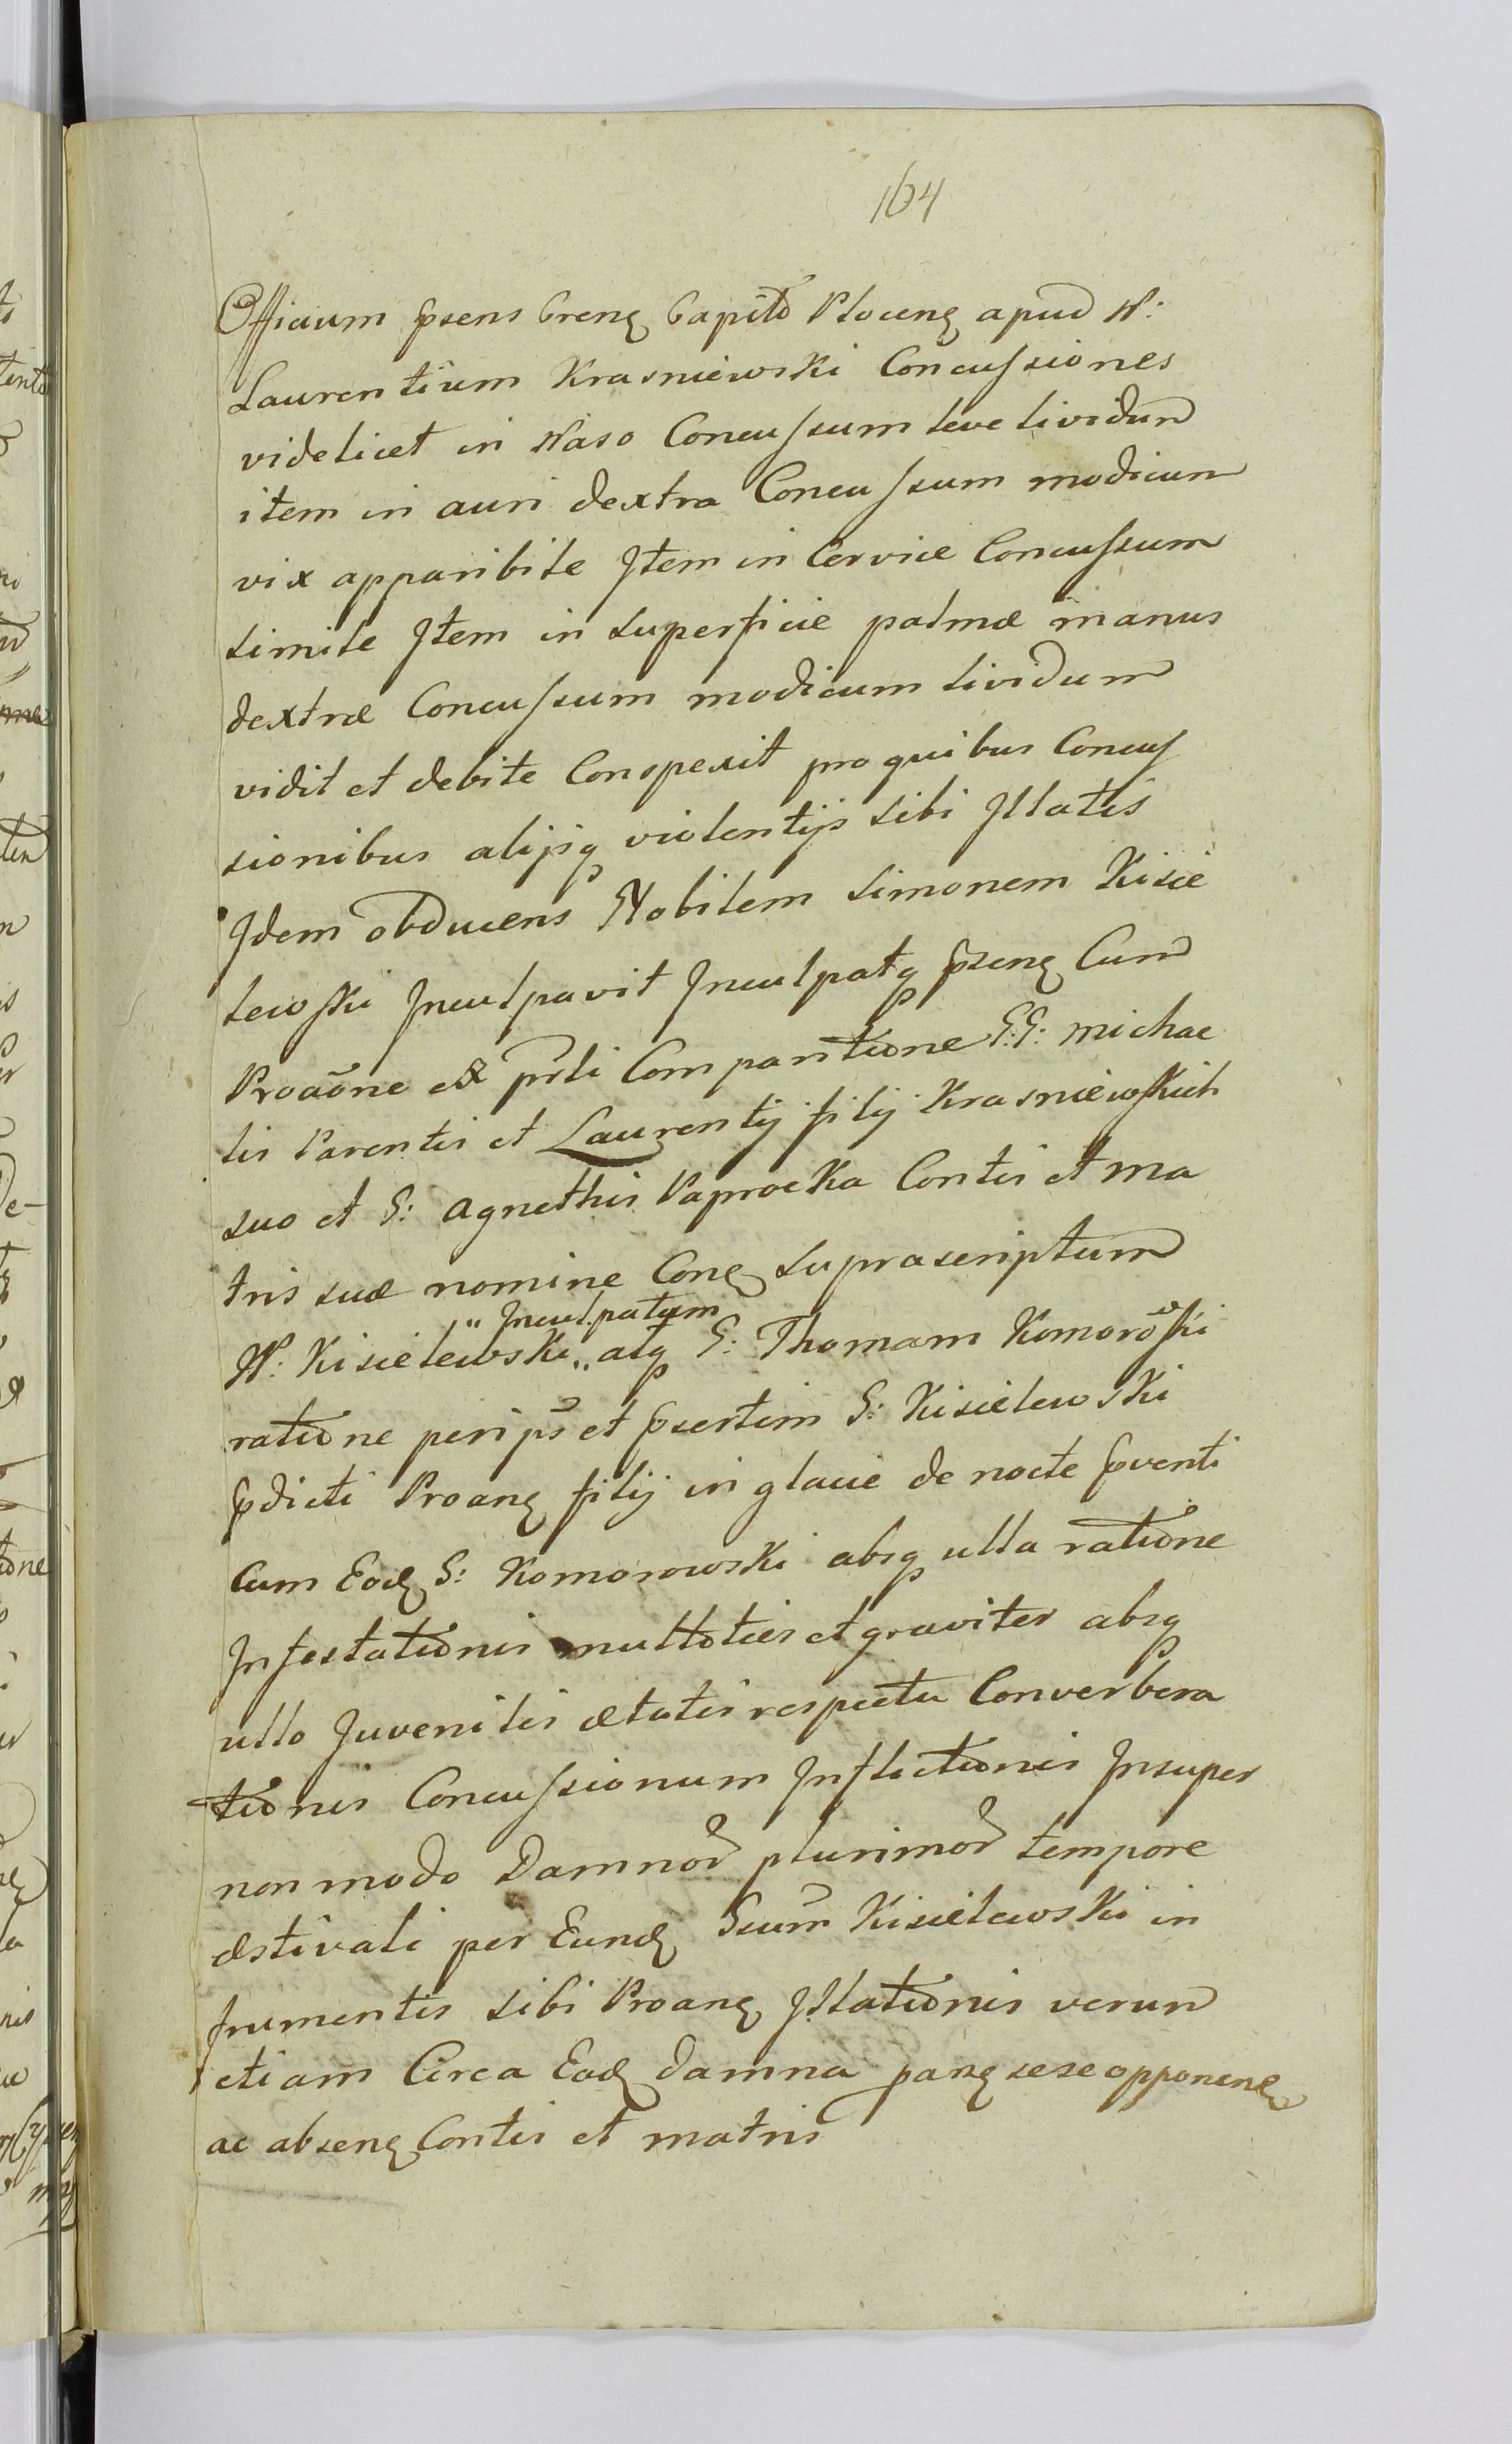 164
Officium pñsens Crenẽ Capitło Plocenẽ apud N:
Laurentium Krasniewski Concussiones
videlicet in Naso Concussum leve lividum
item in auri dextra Concussum modicum
vix apparibile Item in Cervice Concussum
simile Item in superficie palmæ manus
dextræ Concussum modicum lividum
vidit et debite Conspexit pro quibus Concus
sionibus alijsq violentijs sibi Illatis
Idem obducens Nobilem Simonem Kisie
lewski Inculpavit Inculpatq pñsenẽ Cum
Proaõne ex pr̃li Comparitione G:G: Michae
lis Parentis et Laurentij filij Krasniewskich
suo et G: Agnethis Paprocka Contis et ma
tris suæ nomine Conẽ suprascriptum
N: Kisielewski „ Inculpatum „ atq G: Thomam Komorowski
ratione per ip̃s et pñsertim G: Kisielewski
pñdicti Proanẽ filij in glacie de nocte pñventi
Cum Eodẽ G: Komorowski absq ulla ratione
Infestationis multoties et graviter absq
ullo Juvenilis ætatis respectu Converbera
tionis Concussionum Inflictionis Insuper
non modo Damnor̃ plurimor̃ tempore
æstivali per Eundẽ Gsum̃ Kisielewski in
frumentis sibi Proanẽ Illationis verum
etiam Circa Eadẽ damna panẽ sese opponenẽ
ac absenẽ Contis et matris